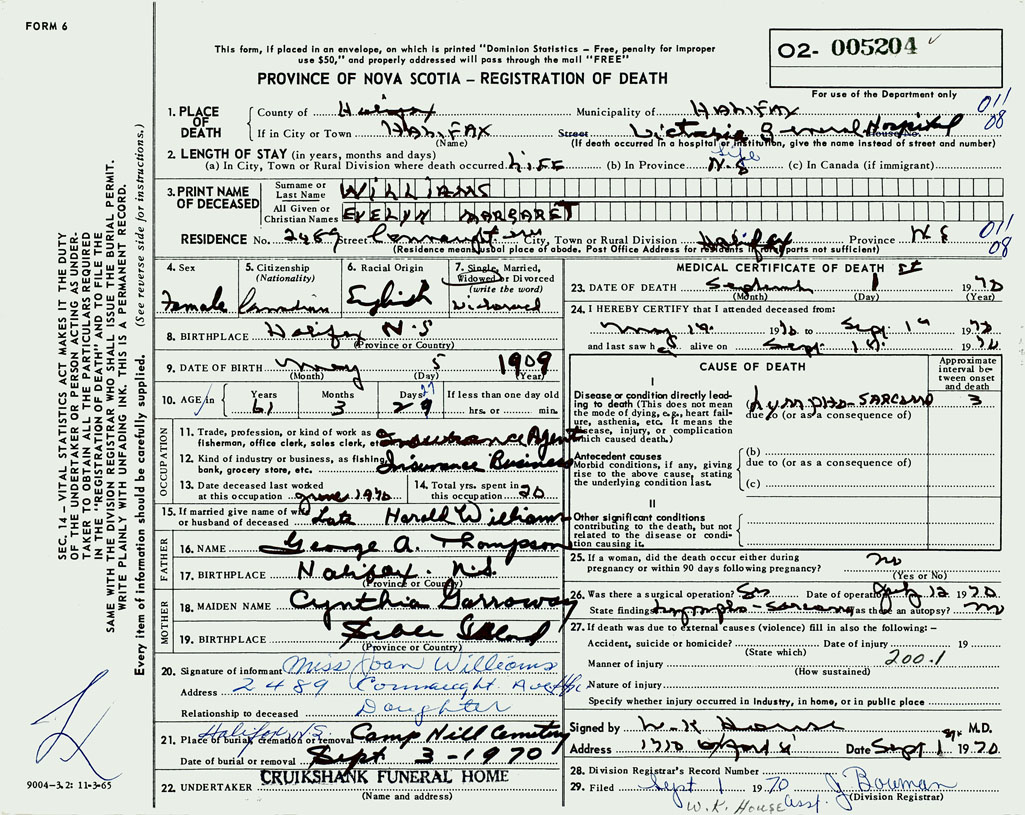 FORM 6
O2- 005204
This form, if placed in an envelope, on which is printed "Dominion Statistics – Free, penalty for improper
use $50," and properly addressed will pass through the mail "FREE"
PROVINCE OF NOVA SCOTIA – REGISTRATION OF DEATH
For use of the Department only
011
08
1. PLACE OF DEATH
County of Halifax Municipality of HALIFAX
If in City or Town HALIFAX Street Victoria General Hospital House No.
(Name) (If death occurred in a hospital or institution, give the name instead of street and number)
2. LENGTH OF STAY (in years, months and days)
(a) In City, Town or Rural Division where death occurred LIFE (b) In Province Life N.S (c) In Canada (if immigrant)
3. PRINT NAME OF DECEASED
Surname or Last Name WILLIAMS
All Given or Christian Names EVELYN MARGARET
RESIDENCE No. 2489 Street Connaught Ave City, Town or Rural Division Halifax Province N S
(Residence means usual place of abode. Post Office Address for residents in rural parts not sufficient)
011
08
4. Sex Female
5. Citizenship (Nationality) Canadian
6. Racial Origin English
7. Single, Married, Widowed or Divorced (write the word) Widowed
8. BIRTHPLACE Halifax N.S
(Province or Country)
9. DATE OF BIRTH May 5 1909
(Month) (Day) (Year)
10. AGE in Years 61 Months 3 Days 29 27 If less than one day old hrs. or min.
OCCUPATION
11. Trade, profession, or kind of work as fisherman, office clerk, sales clerk, etc. Insurance Agent
12. Kind of industry or business, as fishing, bank, grocery store, etc. Insurance Business
13. Date deceased last worked at this occupation June 1970
14. Total yrs. spent in this occupation 20
15. If married give name of wife or husband of deceased Late Harold Williams
FATHER
16. NAME George A. Thompson
17. BIRTHPLACE Halifax N.S
(Province or Country)
MOTHER
18. MAIDEN NAME Cynthia Garroway
19. BIRTHPLACE Sable Island
(Province or Country)
20. Signature of informant Miss Joan Williams
Address 2489 Connaught Ave Hfx
Relationship to deceased Daughter
Halifax N.S.
21. Place of burial, cremation or removal Camp Hill Cemetery
Date of burial or removal Sept 3-1970
22. UNDERTAKER CRUIKSHANK FUNERAL HOME
(Name and address)
MEDICAL CERTIFICATE OF DEATH
23. DATE OF DEATH September 1 st 1970
(Month) (Day) (Year)
24. I HEREBY CERTIFY that I attended deceased from:
May 19. 1970 to Sept. 1st 1970
and last saw her alive on Sept. 1st. 1970
CAUSE OF DEATH
Approximate interval between onset and death
I
Disease or condition directly leading to death (This does not mean the mode of dying, e.g., heart failure, asthenia, etc. It means the disease, injury, or complication which caused death.)
(a) Lympho-SARCOMA 3
due to (or as a consequence of)
Antecedent causes
Morbid conditions, if any, giving rise to the above cause, stating the underlying condition last.
(b)
due to (or as a consequence of)
(c)
II
Other significant conditions contributing to the death, but not related to the disease or condition causing it.
25. If a woman, did the death occur either during pregnancy or within 90 days following pregnancy? no
(Yes or No)
26. Was there a surgical operation? Date of operation 12 1970
State findings Lympho-Sarcoma Was there an autopsy? no
27. If death was due to external causes (violence) fill in also the following: –
Accident, suicide or homicide? Date of injury 19
(State which)
Manner of injury 200.1
(How sustained)
Nature of injury
Specify whether injury occurred in Industry, in home, or in public place
Signed by W. K House M.D.
Address Date Sept 1st 1970
28. Division Registrar's Record Number
29. Filed Sept 1 1970 J Bowman
(Division Registrar)
W. K. House Asst.
SEC. 14 – VITAL STATISTICS ACT MAKES IT THE DUTY
OF THE UNDERTAKER OR PERSON ACTING AS UNDER-
TAKER TO OBTAIN ALL THE PARTICULARS REQUIRED
IN THE "REGISTRATION OF DEATH" AND TO FILE THE
SAME WITH THE DIVISION REGISTRAR WHO SHALL ISSUE THE BURIAL PERMIT.
WRITE PLAINLY WITH UNFADING INK. THIS IS A PERMANENT RECORD.
Every item of information should be carefully supplied. (See reverse side for instructions.)
9004-3.2: 11-3-65